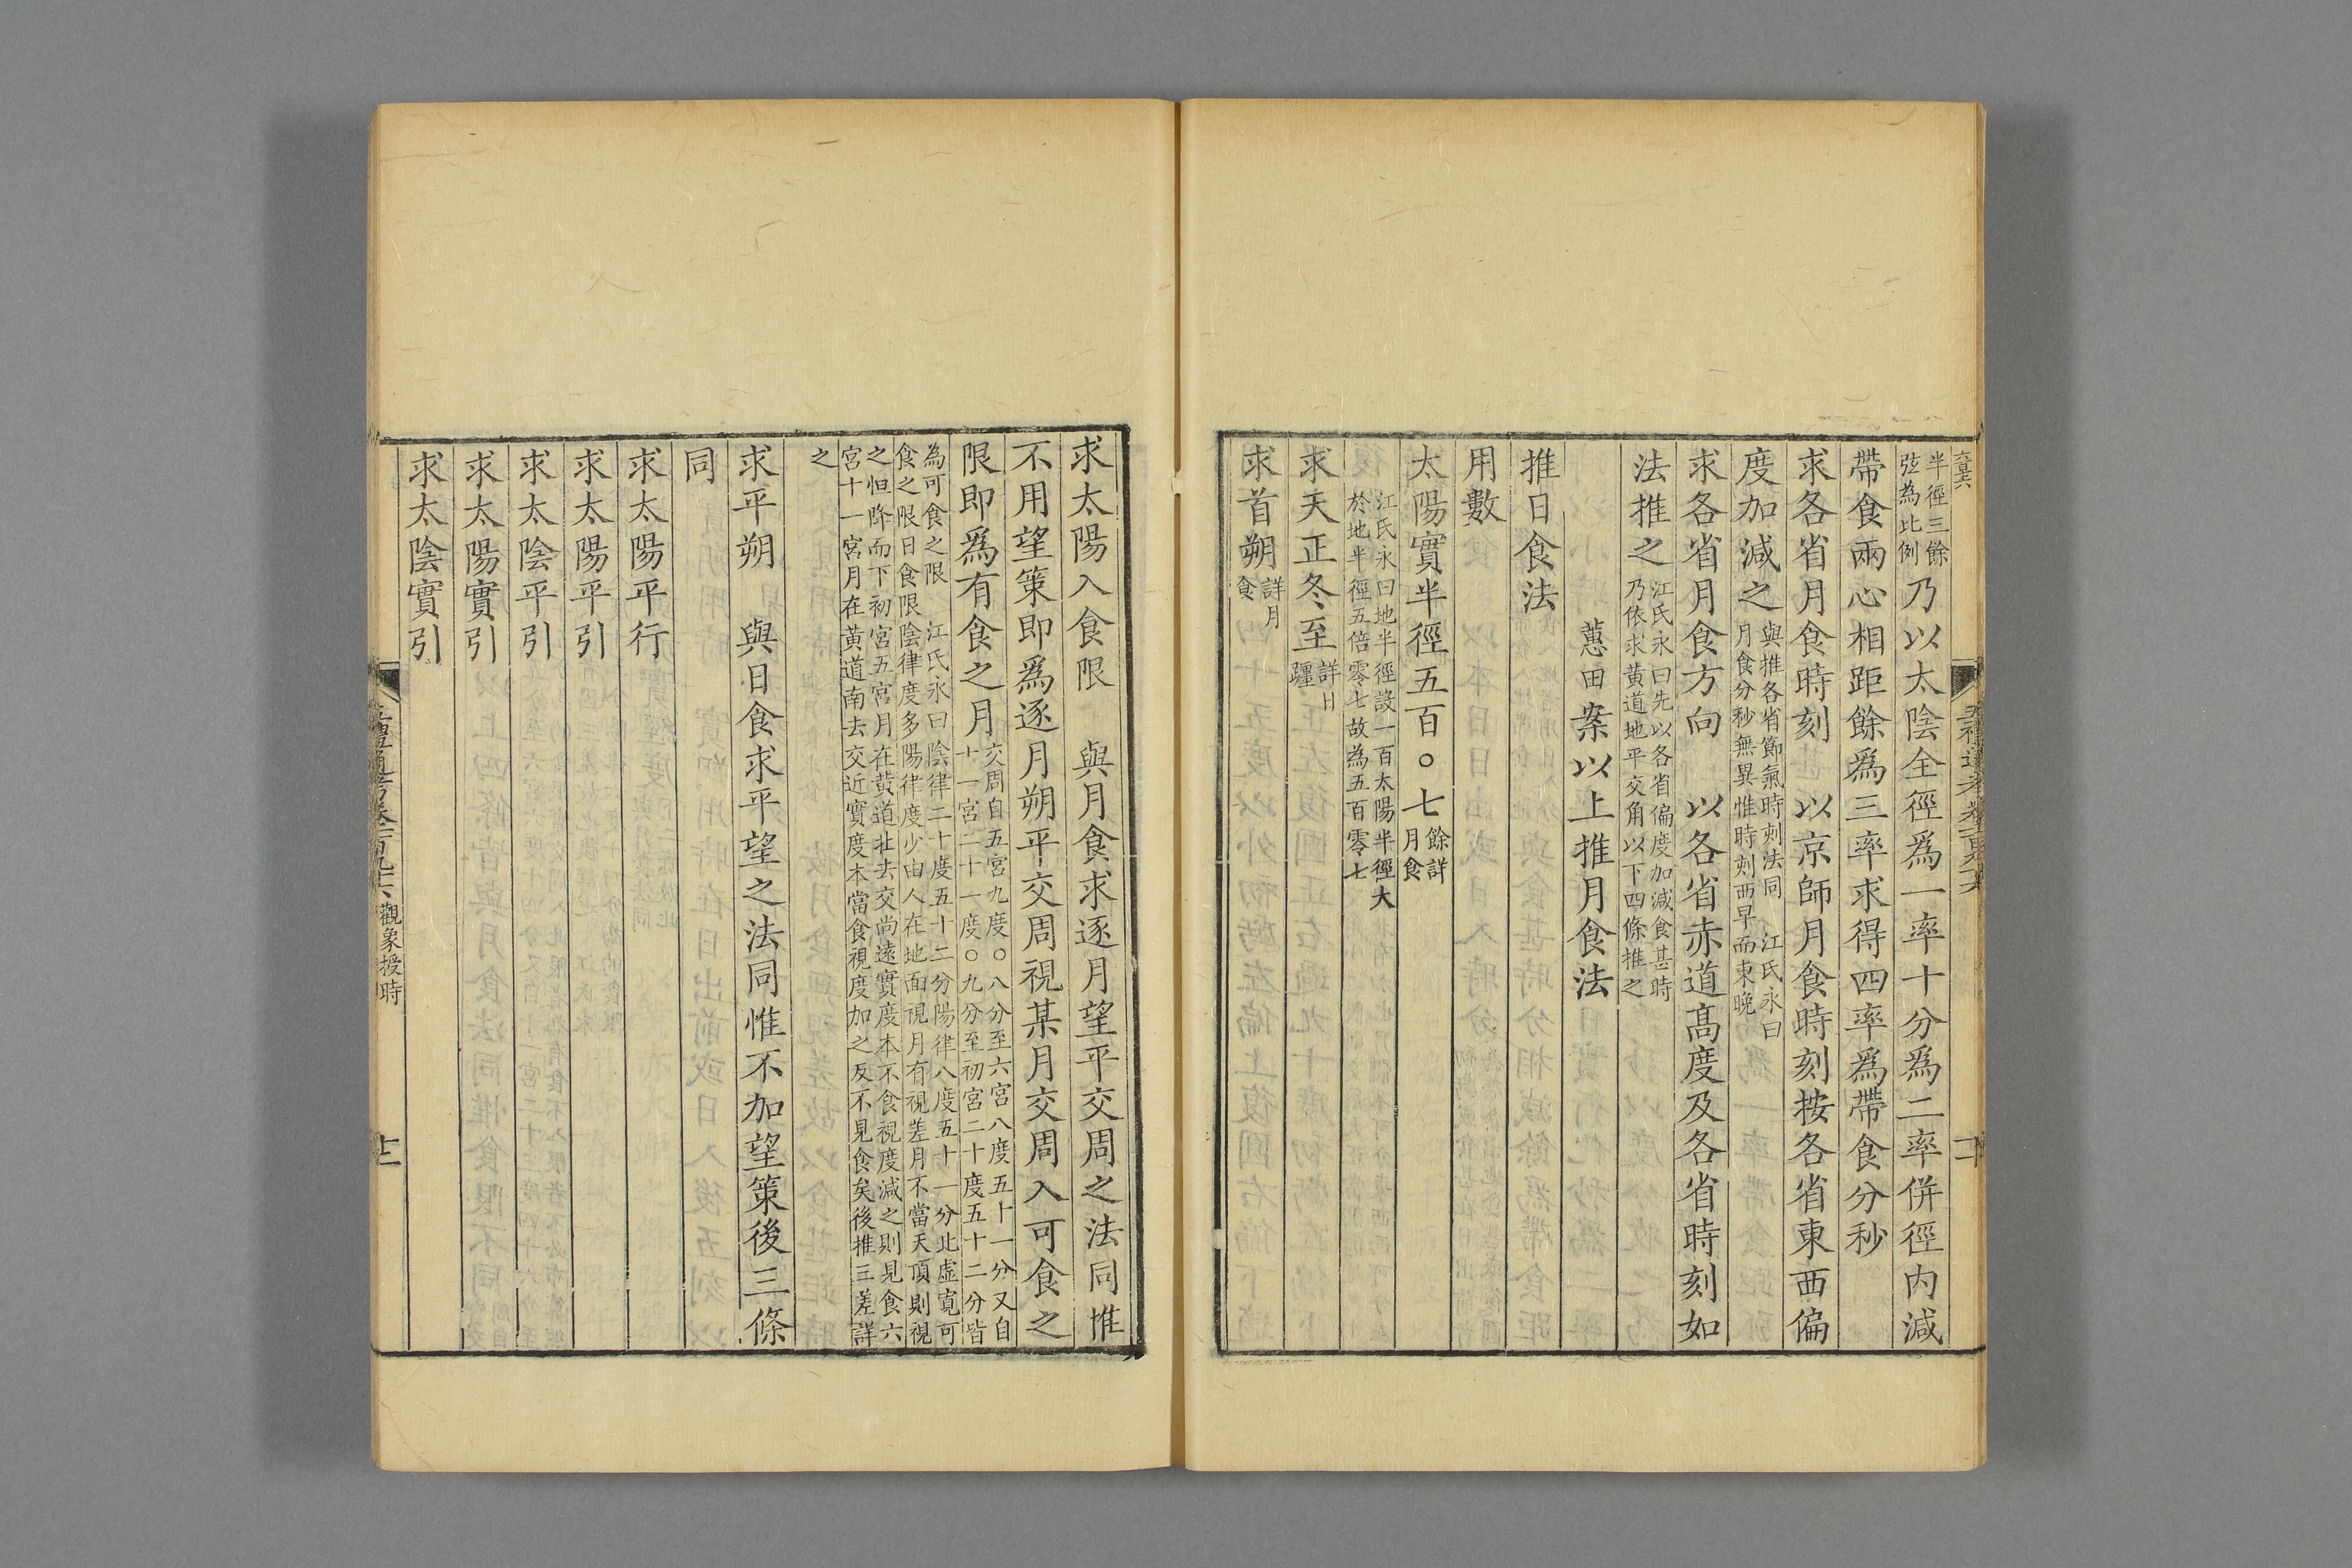 半徑三餘
弦為比例
乃以太陰全徑爲一率十分爲二率併徑内減
帶食兩心相距餘爲三率求得四率爲帶食分秒
求各省月食時刻　以京師月食時刻按各省東西偏
度加減之
與推各省節氣時刻法同　江氏永曰
月食分秒無異惟時刻西早而東晚
求各省月食方向　以各省赤道高度及各省時刻如
法推之
江氏永曰先以各省偏度加減食甚時
乃依求黃道地平交角以下四條推之
蕙田案以上推月食法
推日食法
用數
太陽實半徑五百〇七
餘詳
月食
江氏永曰地半徑設一百太陽半徑大
於地半徑五倍零七故為五百零七
求天正冬至
詳日
躔
求首朔
詳月
食
求太陽入食限　與月食求逐月望平交周之法同惟
不用望策即爲逐月朔平交周視某月交周入可食之
限即爲有食之月
交周自五宮九度〇八分至六宮八度五十一分又自
十一宮二十一度〇九分至初宮二十度五十二分皆
為可食之限　江氏永曰陰律二十度五十二分陽律八度五十一分北虛寬可
食之限日食限陰律度多陽律度少由人在地面視月有視差月不當天頂則視
之恒降而下初宮五宮月在黃道北去交尚遠實度本不食視度減之則見食六
宮十一宮月在黃道南去交近實度本當食視度加之反不見食矣後推三差詳
之
求平朔　與日食求平望之法同惟不加望策後三條
同
求太陽平行
求太陽平引
求太陰平引
求太陽實引
求太陰實引
觀象授時